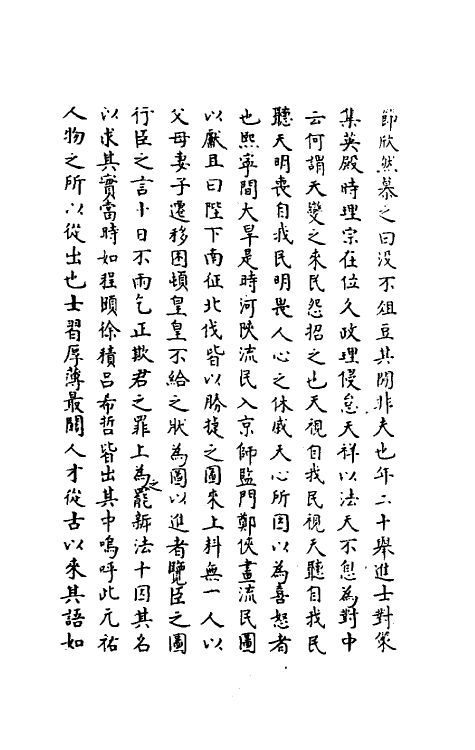 節欣然慕之曰沒不俎豆其間非夫也年二十舉進士對策
集英殿時理宗在位久政理侵怠天祥以法天不息為對中
云何謂天變之来民怨招之也天視自我民視天聽自我民
聽天明畏自我民明畏人心之休戚天心所因以為喜怒者
也熙寧間大旱是時河陝流民入京師監門鄭俠畫流民圖
以獻且曰陛下南征北伐皆以勝捷之圖來上料無一人以
父母妻子遷移困頓皇皇不給之狀為圖以進者覽臣之圖
行臣之言十日不雨乞正欺君之罪上為之罷新法十因其名
以求其實當時如程頤徐積呂希哲皆出其中嗚呼此元祐
人物之所以從出也士習厚薄最關人才從古以來其語如